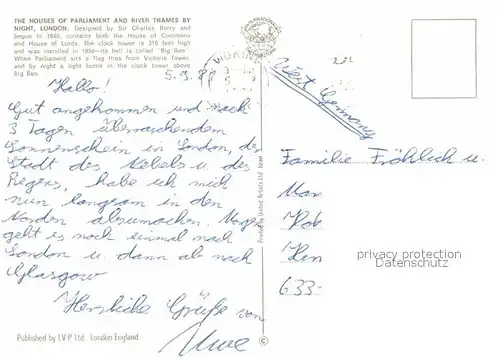 THE HOUSES OF PARLIAMENT AND RIVER THAMES BY
NIGHT, LONDON. Designed by Sir Charles Barry and
begun in 1840, contains both the House of Commons
and House of Lords. The clock tower is 319 feet high
and was installed in 1858—its bell is called 'Big Ben'.
When Parliament sits a flag flies from Victoria Tower,
and by night a light burns in the clock tower above
Big Ben.
5.3.89
Hallo!
Gut angekommen und nach
3 Tagen überraschendem
Sonnenschein in London, der
Stadt des Nebels u. des
Regens, habe ich mich
nun langsam in den
Norden abzumachen. Morgen
geht es noch einmal nach
London u dann ab nach
Glasgow
Herzliche Grüße von
Uwe
Published by I.V.P Ltd London England
Printed by United Artists Ltd
©
WOKING
West Germany
Familie Fröhlich u.
Mar
Rob
Hen
633-
privacy protection
Datenschutz